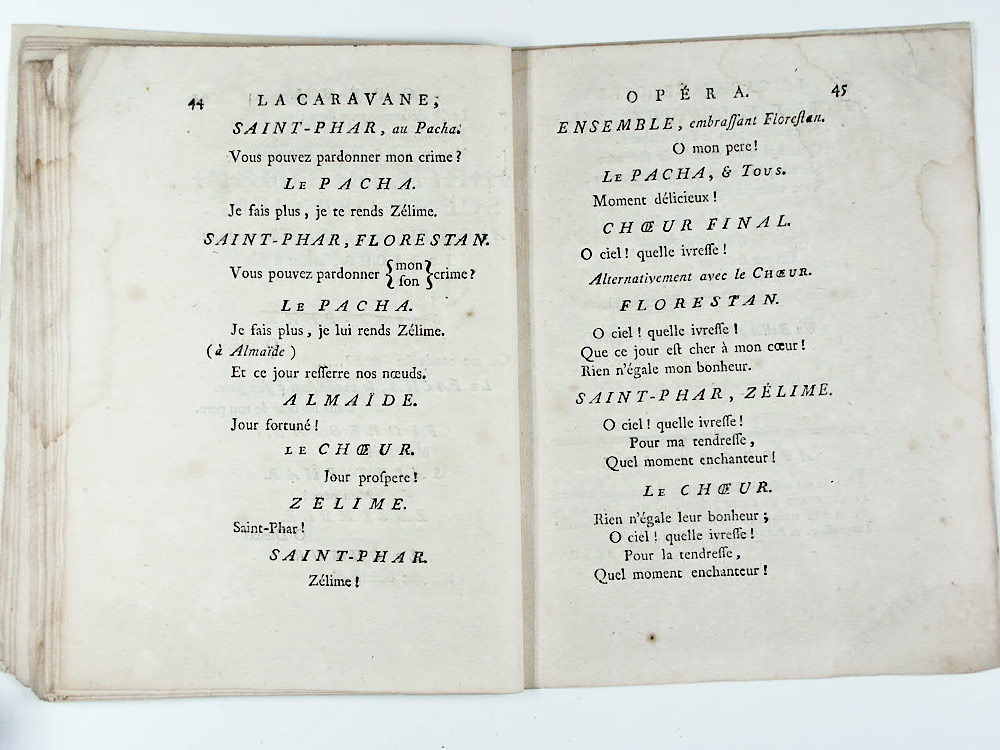 44 LA CARAVANE,
SAINT-PHAR, au Pacha.
Vous pouvez pardonner mon crime?
LE PACHA.
Je fais plus, je te rends Zélime.
SAINT-PHAR, FLORESTAN.
Vous pouvez pardonner { mon / son } crime?
LE PACHA.
Je fais plus, je lui rends Zélime.
(à Almaïde)
Et ce jour reſſerre nos nœuds.
ALMAÏDE.
Jour fortuné!
LE CHŒUR.
Jour proſpere!
ZELIME.
Saint-Phar!
SAINT-PHAR.
Zélime!
OPÉRA. 45
ENSEMBLE, embraſſant Floreſtan.
O mon pere!
LE PACHA, & TOUS.
Moment délicieux!
CHŒUR FINAL.
O ciel! quelle ivreſſe!
Alternativement avec le CHŒUR.
FLORESTAN.
O ciel! quelle ivreſſe!
Que ce jour eſt cher à mon cœur!
Rien n'égale mon bonheur.
SAINT-PHAR, ZÉLIME.
O ciel! quelle ivreſſe!
Pour ma tendreſſe,
Quel moment enchanteur!
LE CHŒUR.
Rien n'égale leur bonheur;
O ciel! quelle ivreſſe!
Pour la tendreſſe,
Quel moment enchanteur!